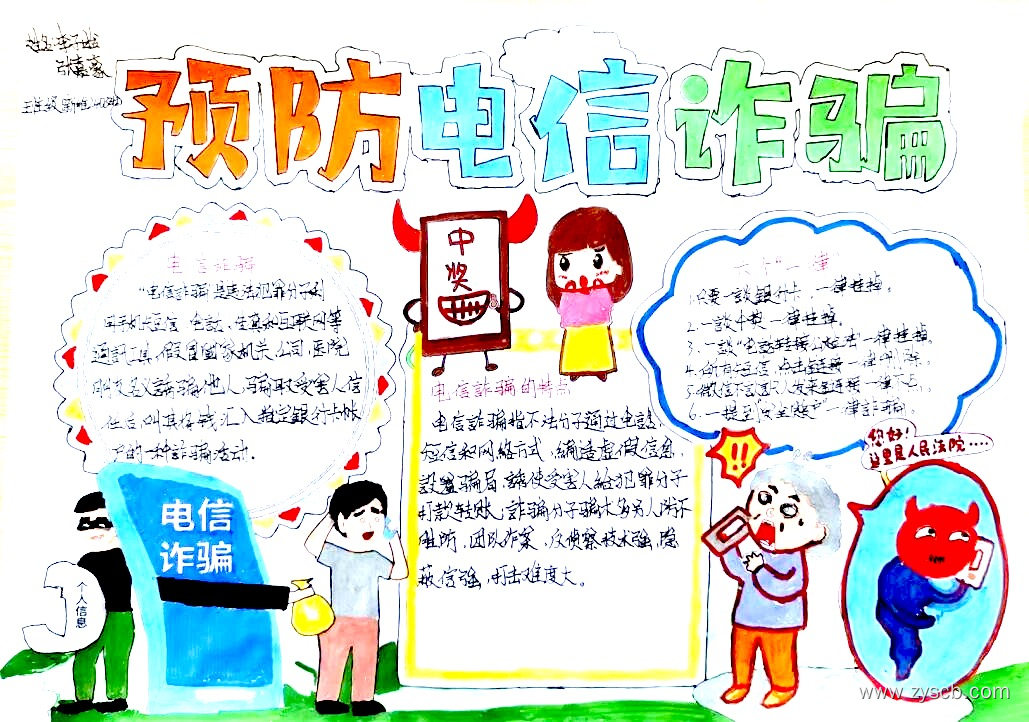 预防电信诈骗
张嘉豪
电信诈骗
"电信诈骗是违法犯罪分子利
用手机短信、电话、传真和互联网等
通讯工具,假冒国家机关、公司、医院
信后叫其将钱汇入指定银行卡帐
户的一种诈骗活动.
中
奖
电信诈骗的特点
电信诈骗指不法分子通过电话,
短信和网络方式,编造虚假信息,
设置骗局,诱使受害人给犯罪分子
打款转账,诈骗分子骗术多为人所不
团队作案,反侦察技术强,隐
蔽信强,打击难度大。
六个"一律"
1.只要一谈银行卡,一律挂掉。
2.一谈中奖一律挂掉。
3.一谈"电话转接公检法"一律挂掉。
4.所有短信,点击链接一律删除。
5.微信不认识人发来的链接一律不点。
6.一提到"安全账户"一律诈骗。
您好!
这里是人民法院....
!!
电信
诈骗
个人信息
www.zyscb.com